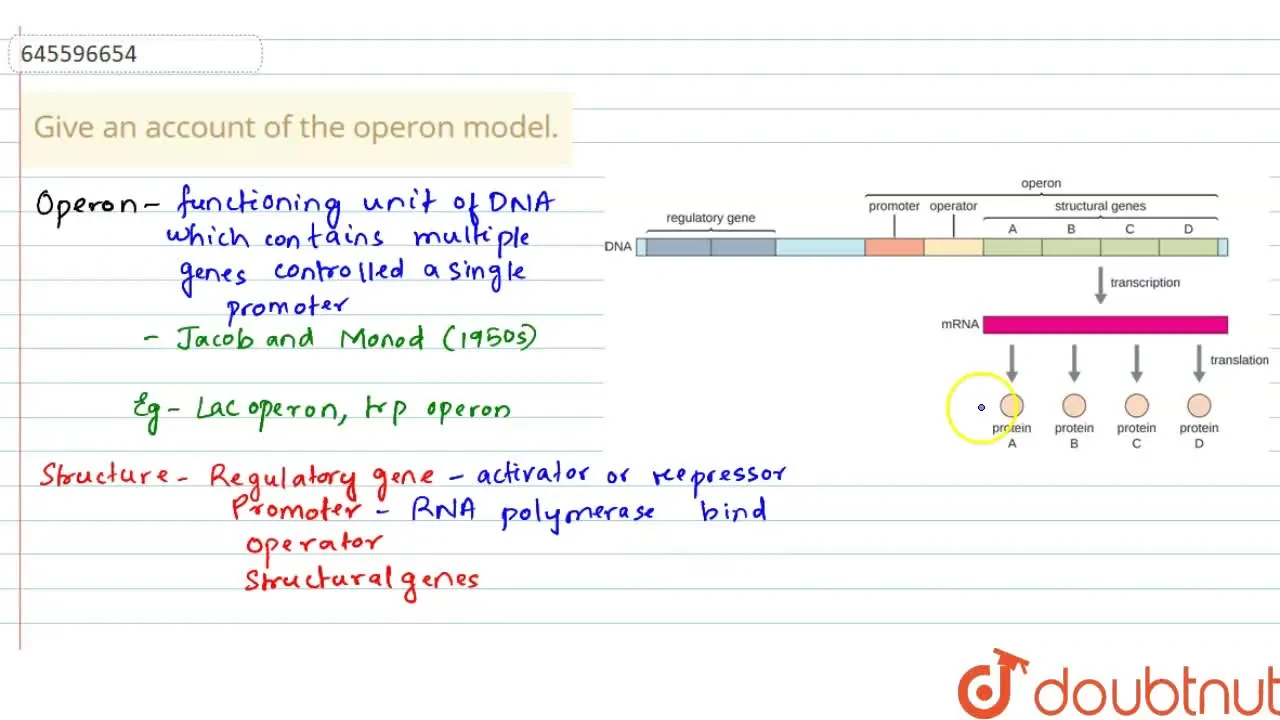 645596654
Give an account of the operon model.
Operon - functioning unit of DNA
which contains multiple
genes controlled a single
promoter
- Jacob and Monod (1950s)
Eg - Lac operon, trp operon
Structure - Regulatory gene - activator or repressor
Promoter - RNA polymerase bind
operator
Structural genes
operon
regulatory gene
promoter operator structural genes
A B C D
DNA
transcription
mRNA
translation
protein protein protein protein
A B C D
doubtnut